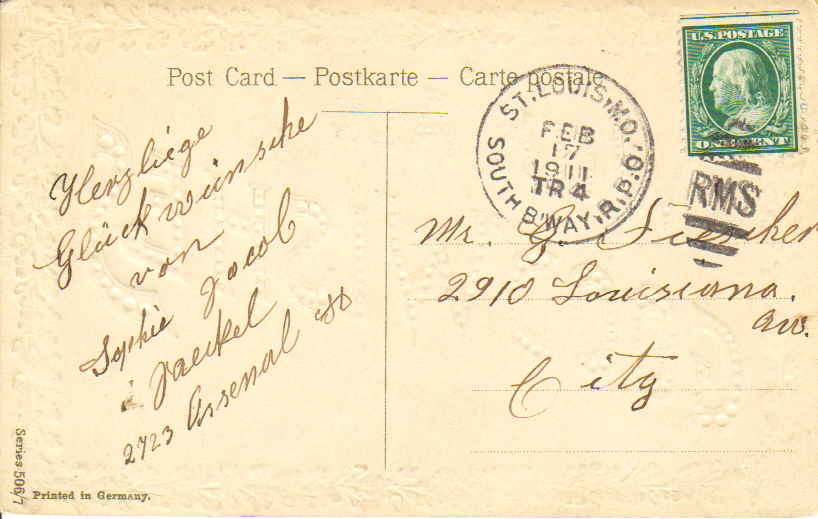 Post Card — Postkarte — Carte postale
U.S. POSTAGE
ONE CENT
ST. LOUIS, MO.
SOUTH B'WAY, R.P.O.
FEB
17
1911
TR 4
RMS
Herzliege
Glückwünsche
von
Sophie Jacob
Jaeckel
2723 Arsenal St
Mr. G.
2910 Louisiana.
av.
City
Series 506/7
Printed in Germany.